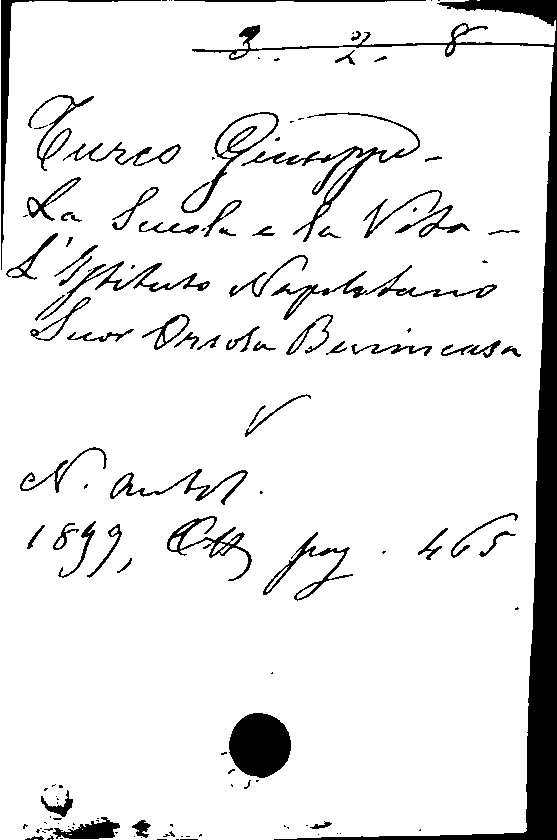 3. 2. 8
Turco Giuseppe -
La Scuola e la Vita -
L'Istituto Napoletano
Suor Orsola Benincasa
V
N. Antol.
1899, Ott. pag. 465